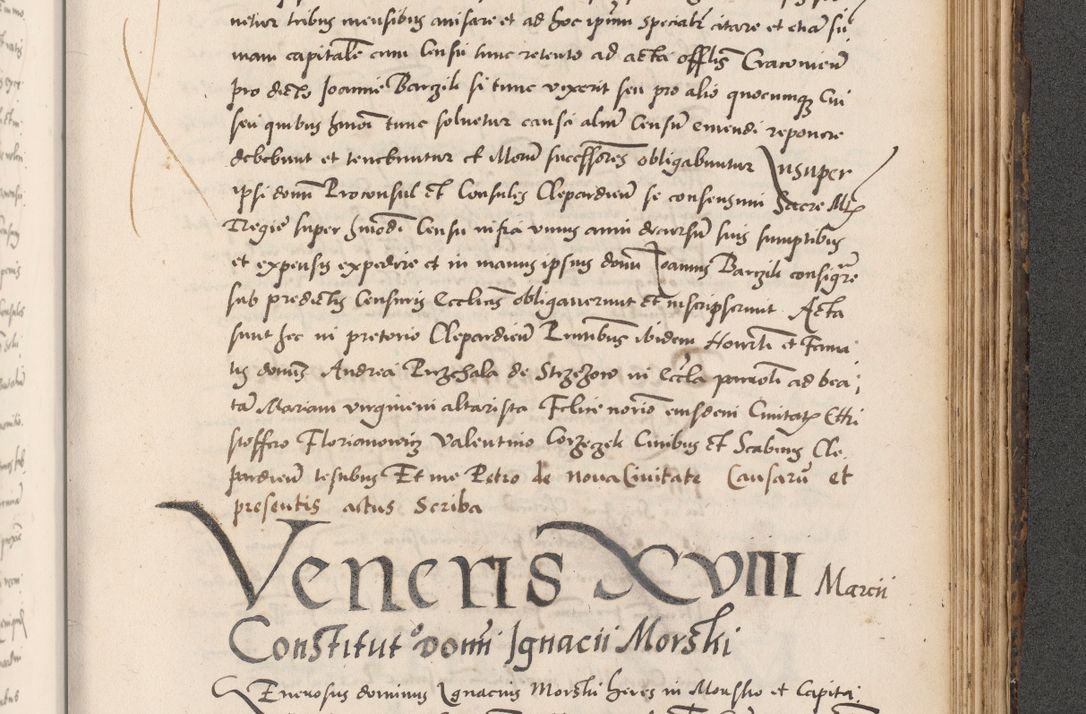 netur tribus mensibus avisare et ad hoc ipsum specialr citare et etia su
mam capitale cum Censu tunc retento ad acta offlis Cracovien
pro dicto Joanne Barzili si tunc vixerit seu pro alio quocumq cui
seu quibus hmoi tunc solvetur causa aliu Censu emendi reponere
debebunt et tenebuntur et illoru successores obligabuntur Insuper
ipsi domi Proconsul et Consules Clepardien se consensum Sacre Mtis
Regie super hmodi Censu infra unius anni decursu suis sumptibus
et expensis expedire et in manus ipsius domi Joannis Barzili consigre
sub predictis Censuris Ecclicis obligaverunt et inscripserunt Acta
sunt hec in pretorio Clepardien Pntibus ibidem Honrti et Fama
tis domis Andrea de in Eccla ad bea
ta Mariam virginem altarista Felice norio eiusdem Civitatis Cttri
stoffero Florianowicz Valentino Civibus et Scabinis Cle
pardien testibus Et me Petro de nova Civitate Causaru et
presentis actus Scriba
Veneris XVIII Marcii
Constitut domi Ignacii Morski
Enerosus dominus Ignacius Morski heres in et Capita